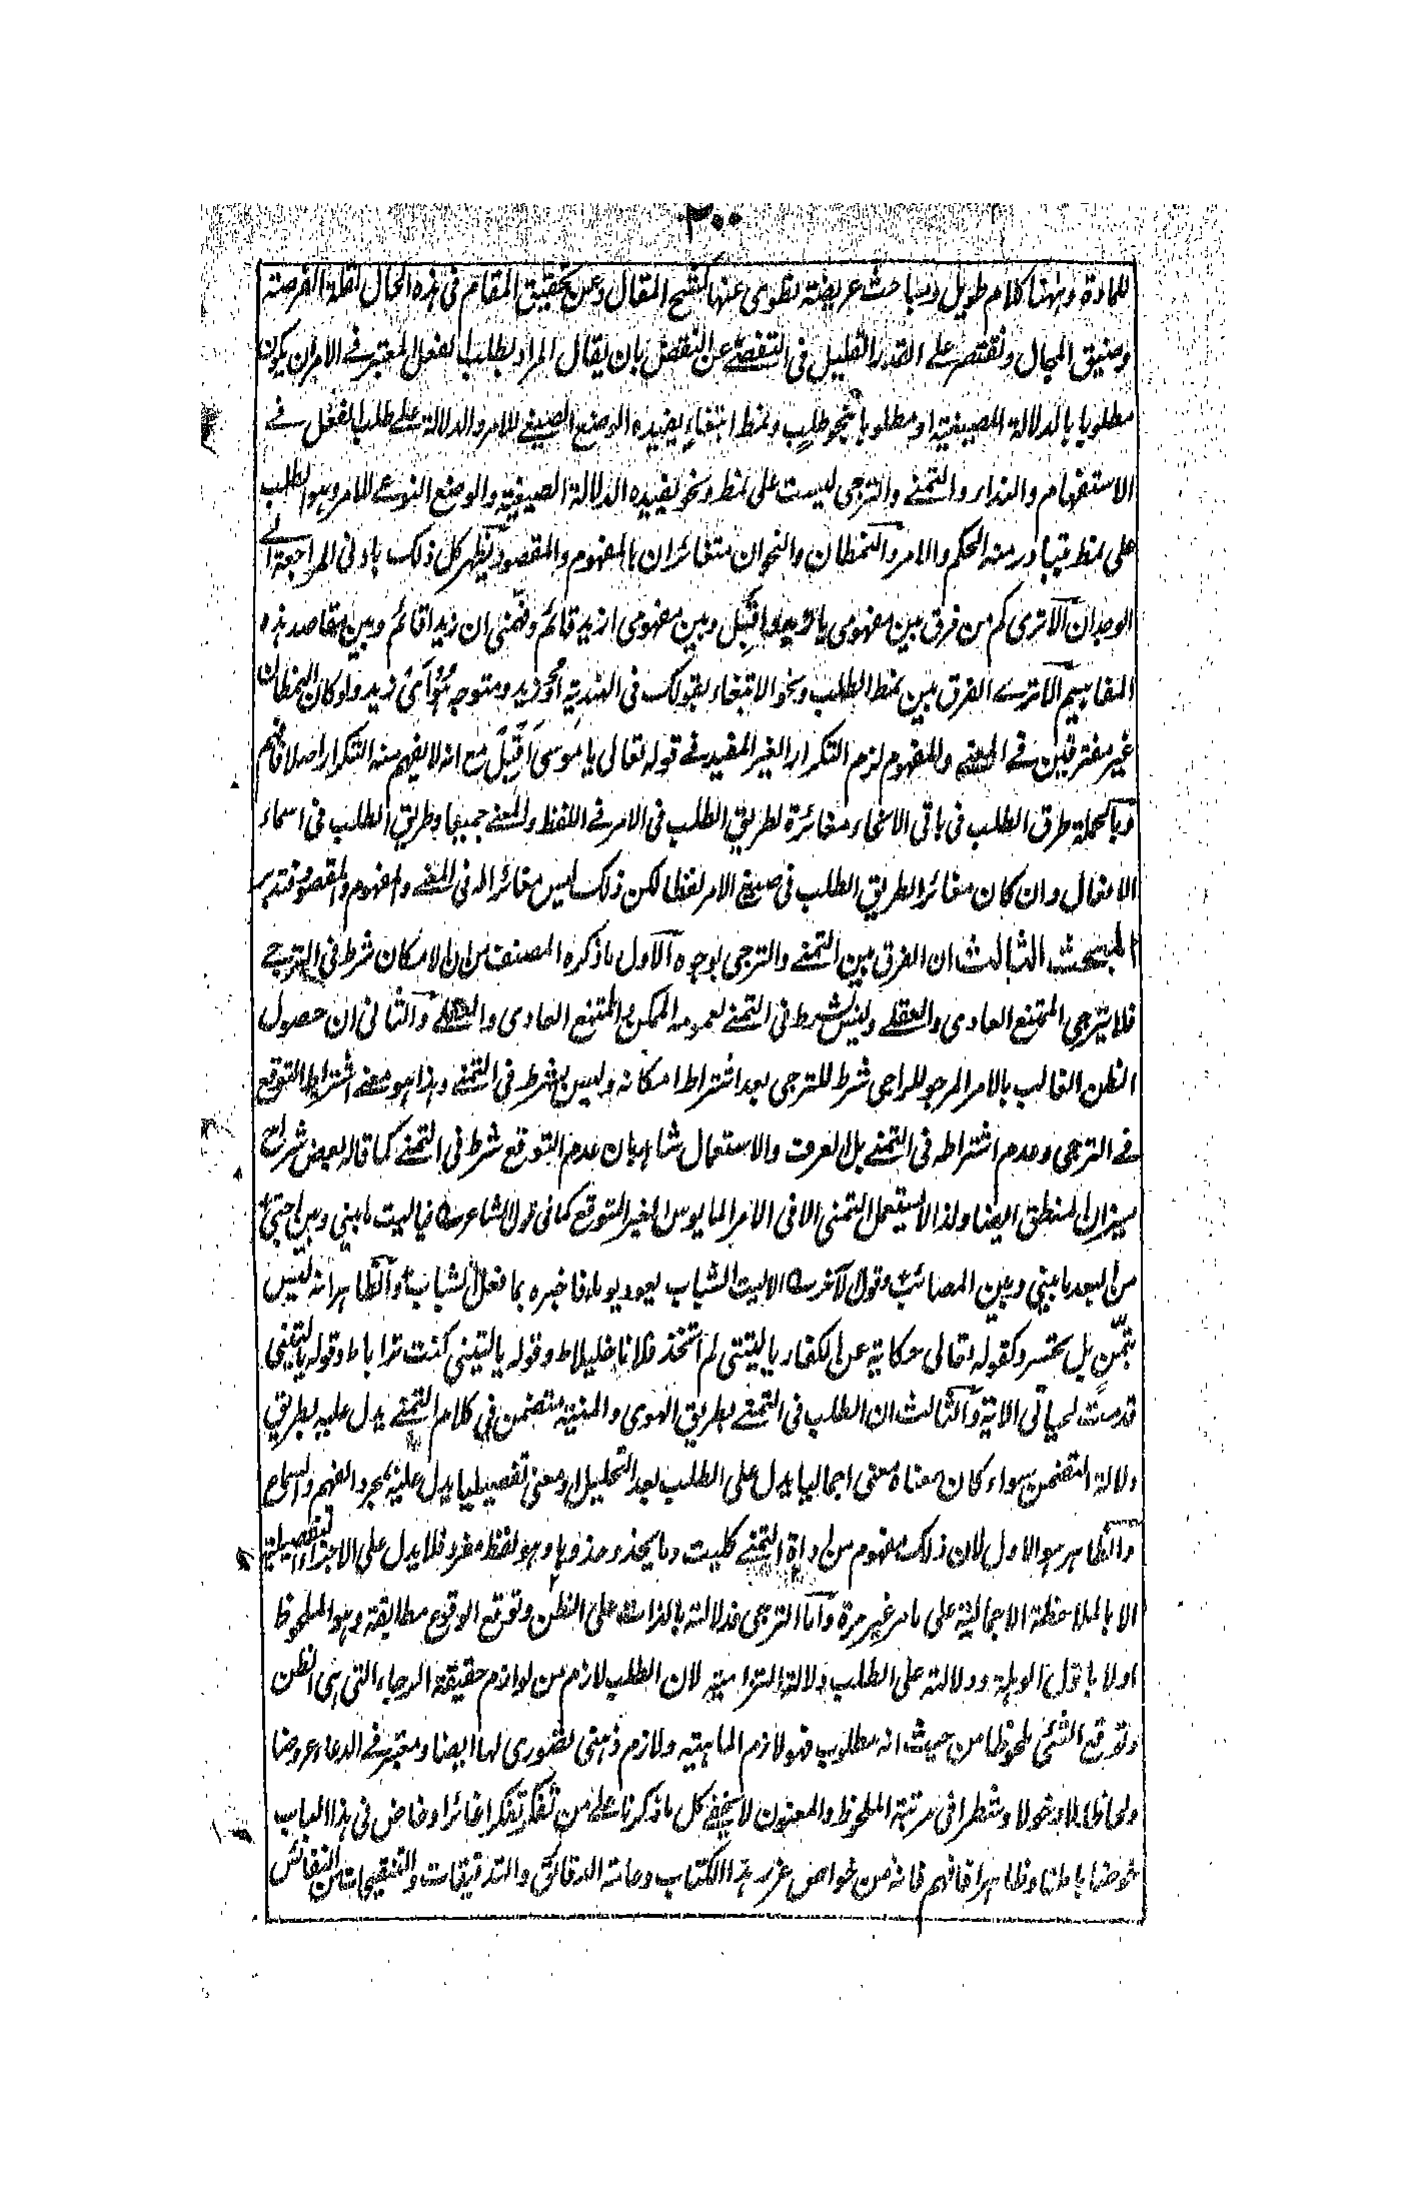 ٣٠٠
للمادة وههنا كلام طويل ومباحث عريضة نطوى عنها كشح المقال وعن تحقيق المقام فى هذه الحال لقلة الفرصة
وضيق المجال ونقتصر على القدر القليل فى التفصى عن النقض بان يقال المراد بطلب الفعل المعتبر فى الامر ان يكون
مطلوبا بالدلالة الصيغية او مطلوبا بنحو طلب ونمط ابتغاء يفيده الوضع الصيغى للامر والدلالة على طلب الفعل فى
الاستفهام والنداء والتمنى والترجى ليست على نمط ونحو يفيده الدلالة الصيغية والوضع النوعى للامر وهو الطلب
على نمط يتبادر منه الحكم والامر والنمطان والنحوان متغائران بالمفهوم والمقصود يظهر كل ذلك بادنى المراجعة الى
الوجدان الا ترى كم من فرق بين مفهومى يا زيد واقبل وبين مفهومى ازيد قائم وفهمنى ان زيدا قائم وبين مقاصد هذه
التفاهيم الا ترى الفرق بين نمط الطلب ونحو الابتغاء بقولك فى الهندية زيد ومتوجه زيد ولو كان النمطان
غير مفترقين فى المعنى والمفهوم لزم التكرار الغير المفيد فى قوله تعالى يا موسى اقبل مع انه لا يفهم منه التكرار اصلا فافهم
وبالجملة طرق الطلب فى باقى الانحاء مغائرة لطريق الطلب فى الامر فى اللفظ والمعنى جميعا وطريق الطلب فى اسماء
الافعال وان كان مغائرا لطريق الطلب فى صيغ الامر لفظا لكن ذلك ليس مغائرا له فى المعنى والمفهوم والمقصود فتدبر
المبحث الثالث ان الفرق بين التمنى والترجى بوجوه الاول ما ذكره المصنف من ان الامكان شرط فى الترجى
فلا يترجى الممتنع العادى والعقلى وليس بشرط فى التمنى لعمومه الممكن والممتنع العادى والعقلى والثانى ان حصول
الظن الغالب بالامر المرجو للراجى شرط للترجى بعد اشتراط امكانه وليس بشرط فى التمنى وهذا هو معنى اشتراط التوقع
فى الترجى وعدم اشتراطه فى التمنى بل العرف والاستعمال شاهدان عدم التوقع شرط فى التمنى كما قاله بعض شراح
ميزان المنطق ايضا ولذا لا يستعمل التمنى الا فى الامر المايوس الغير المتوقع كما فى قول الشاعر فيا ليت ما بينى وبين احبتى
من البعد ما بينى وبين المصائب وقول الآخر الا ليت الشباب يعود يوما فاخبره بما فعل الشباب والظاهر انه ليس
بتمن بل تحسر وكقوله تعالى حكاية عن الكفار يا ليتنى لم اتخذ فلانا خليلا ط وقوله يا ليتنى كنت ترابا ط وقوله يا ليتنى
قدمت لحياتى الاية والثالث ان الطلب فى التمنى بطريق الهوى والمنية متضمن فى كلام التمنى يدل عليه بطريق
دلالة التضمن سواء كان معناه معنى اجماليا يدل على الطلب بعد التحليل او معنى تفصيليا يدل عليه بمجرد الفهم والسماع
والظاهر هو الاول لان ذلك مفهوم من اداة التمنى كليت وما يحذو حذوها وهو لفظ مفرد فلا يدل على الاجزاء التفصيلية
الا بالملاحظة الاجمالية على ما مر غير مرة واما الترجى فدلالته بالذات على الظن وتوقع الوقوع مطابقة وهو الملحوظ
اولا باول الوهلة ودلالته على الطلب دلالة التزامية لان الطلب لازم من لوازم حقيقة الرجاء التى هى الظن
وتوقع الشئ ملحوظا من حيث انه مطلوب فهو لازم الماهية ولازم ذهنى تصورى لها ايضا ومعتبر فى الدعاء عروضا
ولحاظا لا دخولا وشطرا فى مرتبة الملحوظ والمعنون لا يخفى كل ما ذكرنا على من تفكر تفكرا غائرا وخاض فى هذا الباب
خوضا باطنا وظاهرا فافهم فانه من خواص غرر هذا الكتاب وعامة الدقائق والتدقيقات والتنقيحات من النفائس